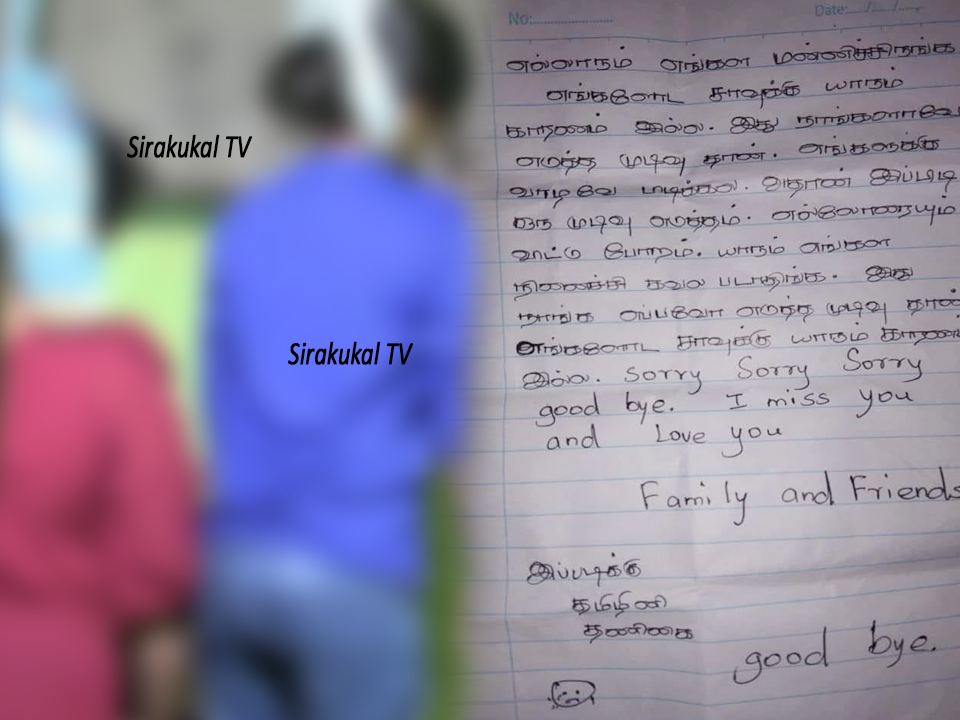 Sirakukal TV
Sirakukal TV
No: Date: / /
எல்லாரும் எங்கள மன்னிச்சிருங்க
எங்களோட சாவுக்கு யாரும்
காரணம் இல்ல. இது நாங்களாவே
எடுத்த முடிவு தான். எங்களுக்கு
வாழவே புடிக்கல. அதான் இப்படி
ஒரு முடிவு எடுத்தம். எல்லோரையும்
விட்டு போறம். யாரும் எங்கள
நினைச்சி கவல படாதிங்க. இது
நாங்க எப்பவோ எடுத்த முடிவு தான்
எங்களோட சாவுக்கு யாரும் காரணம்
இல்ல. Sorry Sorry Sorry
good bye. I miss you
and Love you
Family and Friends
இப்படிக்கு
தமிழினி
தணிகை
good bye.